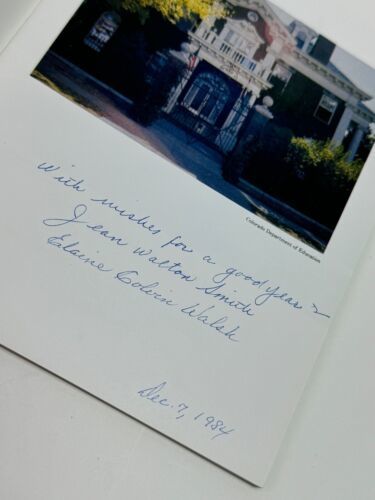 Colorado Department of Education
With wishes for a good year –
Jean Walton Smith
Elaine Colvin Walsh
Dec. 7, 1984